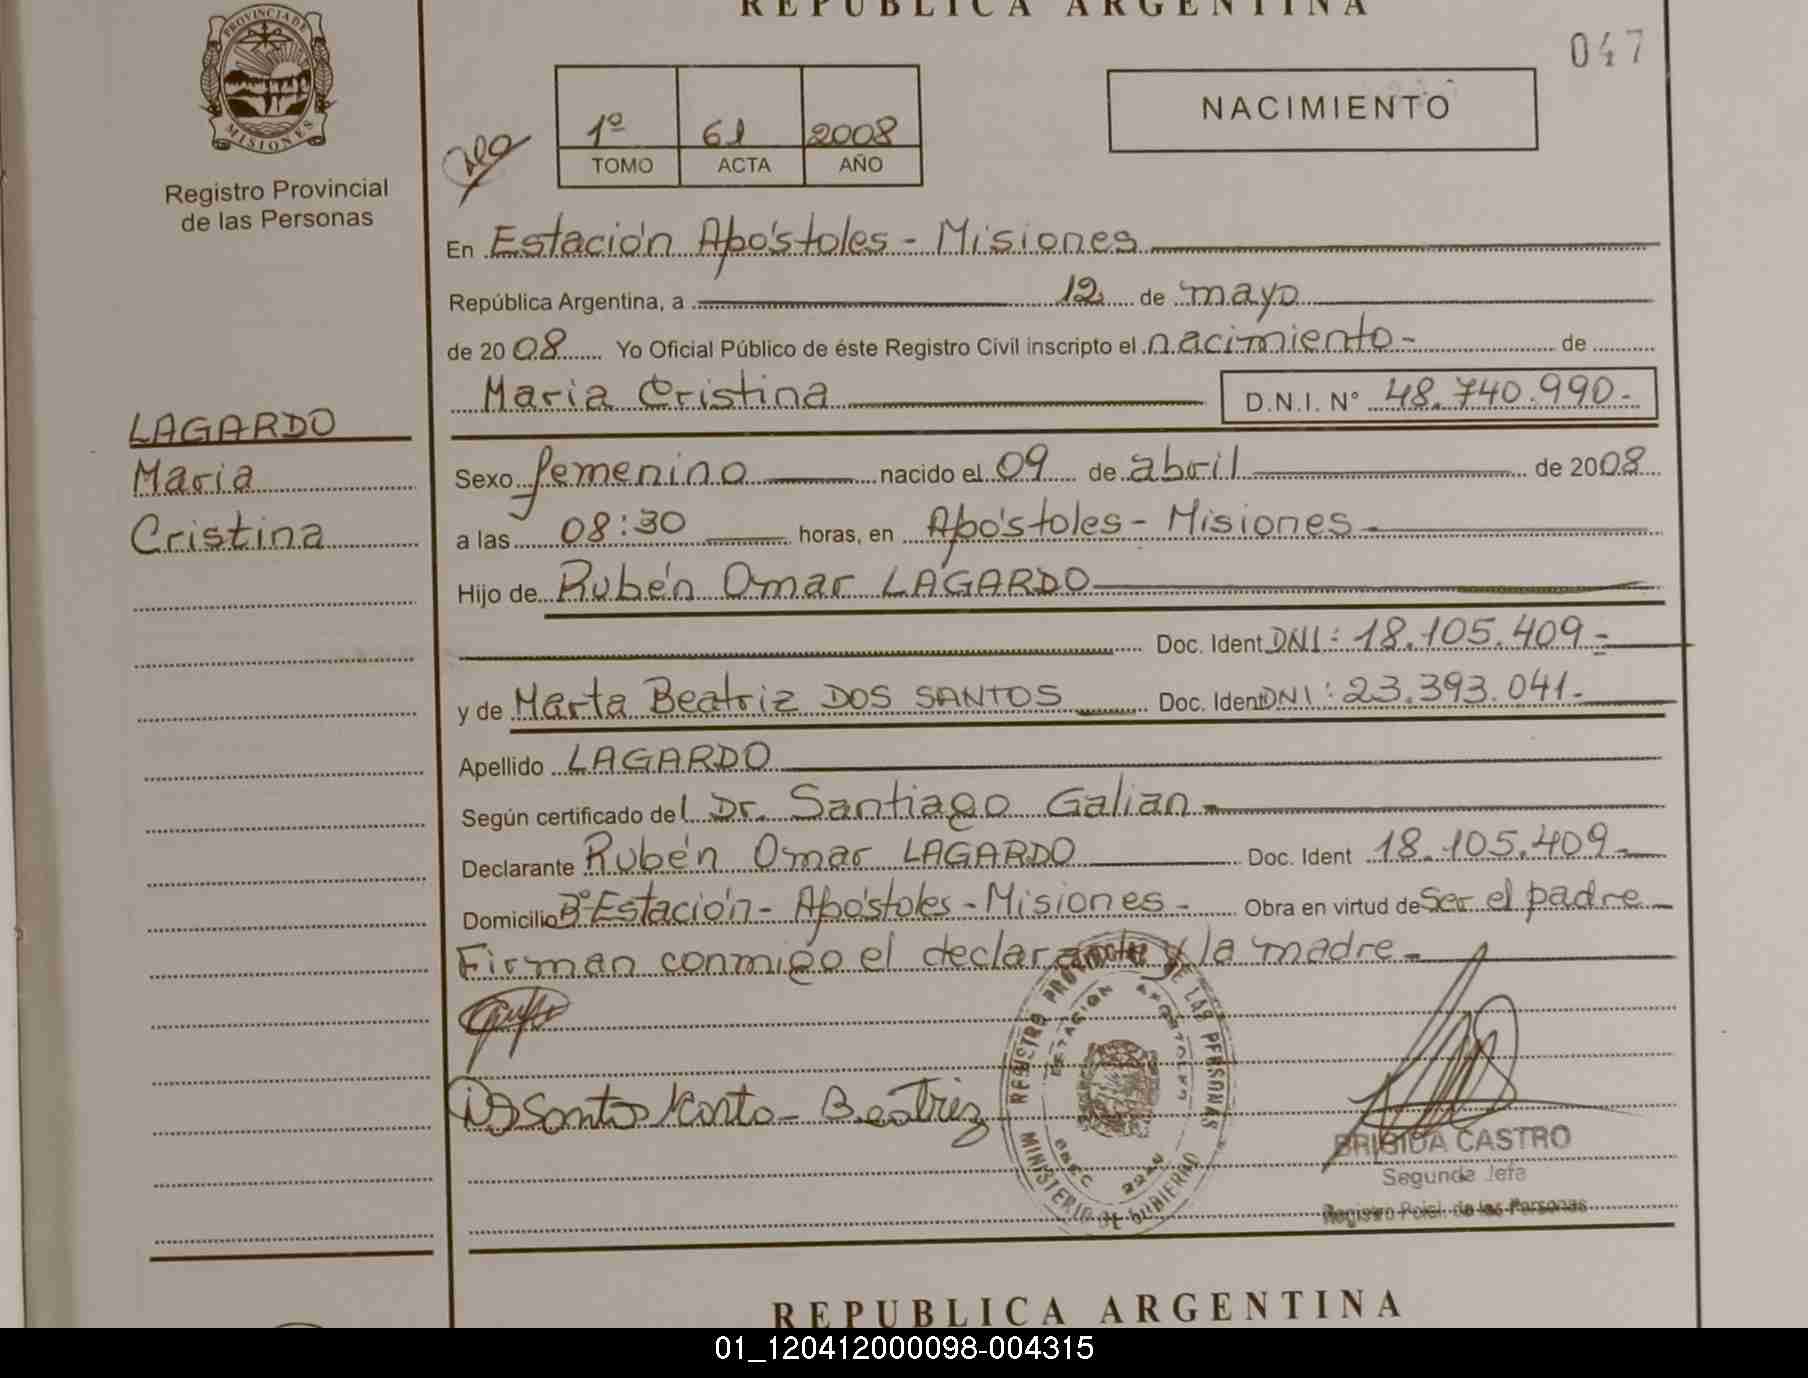 REPUBLICA ARGENTINA
PROVINCIA DE
MISIONES
Registro Provincial
de las Personas
047
1º 61 2008
TOMO ACTA AÑO
NACIMIENTO
En Estación Apóstoles - Misiones
República Argentina, a 12 de mayo
de 2008 Yo Oficial Público de éste Registro Civil inscripto el nacimiento - de
Maria Cristina D.N.I. N° 48.740.990.-
LAGARDO
Maria
Cristina
Sexo femenino nacido el 09 de abril de 2008
a las 08:30 horas, en Apóstoles - Misiones -
Hijo de Rubén Omar LAGARDO
Doc. Ident DNI: 18.105.409.-
y de Marta Beatriz DOS SANTOS Doc. Ident DNI: 23.393.041.-
Apellido LAGARDO
Según certificado del Dr. Santiago Galian -
Declarante Rubén Omar LAGARDO Doc. Ident 18.105.409 -
Domicilio Bº Estación - Apóstoles - Misiones - Obra en virtud de ser el padre
Firman conmigo el declarante y la madre -
Dos Santos Marta - Beatriz
REGISTRO PROVINCIAL DE LAS PERSONAS
ESTACION APOSTOLES
MINISTERIO DE GOBIERNO
BRIGIDA CASTRO
Segunda Jefa
Registro Pcial. de las Personas
REPUBLICA ARGENTINA
01_120412000098-004315